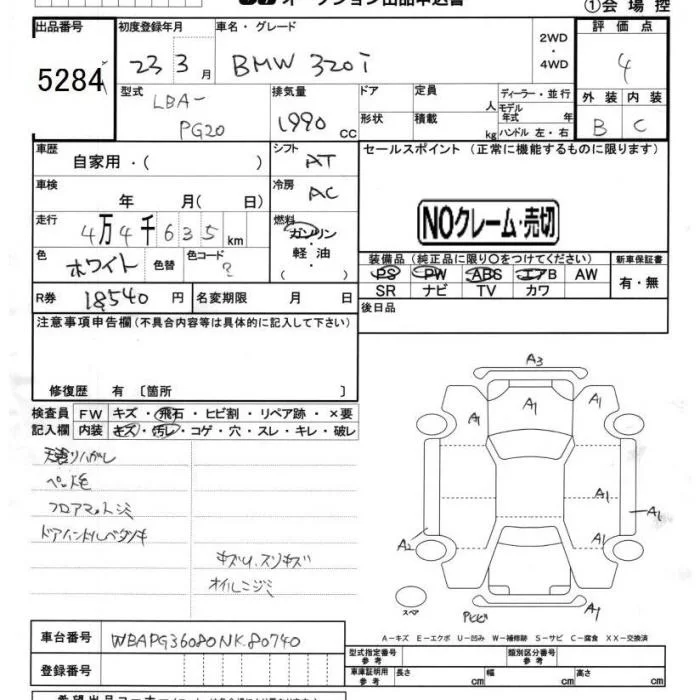 オークション出品申込書
①会場控
出品番号
5284
初度登録年月
23 3月
車名・グレード
BMW 320i
2WD
・
4WD
評価点
4
外装 内装
B C
型式
LBA-
PG20
排気量
1990 cc
ドア
形状
定員
人
積載
kg
ディーラー・並行
モデル
年式 年
ハンドル 左・右
車歴
自家用・( )
シフト
AT
セールスポイント (正常に機能するものに限ります)
車検
年 月( 日)
冷房
AC
NOクレーム・売切
走行
4万4千635km
燃料
ガソリン
軽油
( )
色
ホワイト
色替
色コード
?
装備品 (純正品に限り○をつけてください)
PS PW ABS エアB AW
SR ナビ TV カワ
新車保証書
有・無
R券
18540 円
名変期限 月 日
後日品
注意事項申告欄(不具合内容等は具体的に記入して下さい)
修復歴 有 〔箇所 〕
検査員
記入欄
FW キズ・飛石・ヒビ割・リペア跡・×要
内装 キズ・汚レ・コゲ・穴・スレ・キレ・破レ
フロアマットシミ
キズU.スリキズ
オイルニジミ
A3
A1
A1
A1
A1
A1
A1
A2
A1
スペア
A-キズ E-エクボ U-凹み W-補修跡 S-サビ C-腐食 XX-交換済
車台番号
WBAPG36080NK80740
登録番号
型式指定番号
参考
類別区分番号
参考
車庫証明用
参考
長さ cm 幅 cm 高さ cm